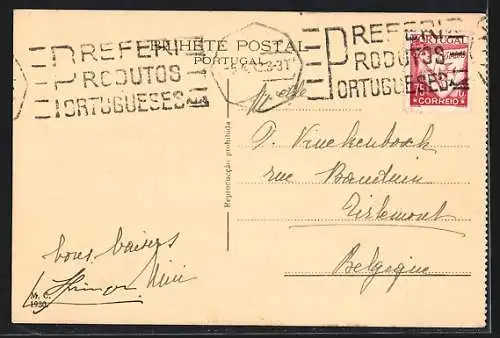 BILHETE POSTAL
PORTUGAL
PREFERI
PRODUTOS
PORTUGUESES
PRODUTOS
PORTUGUESES
PORTUGAL
CORREIO
Reproducção prohibida
Vinckenbosch
rue
Tirlemont
Belgique
bons baisers
Mimi
M. C.
1930